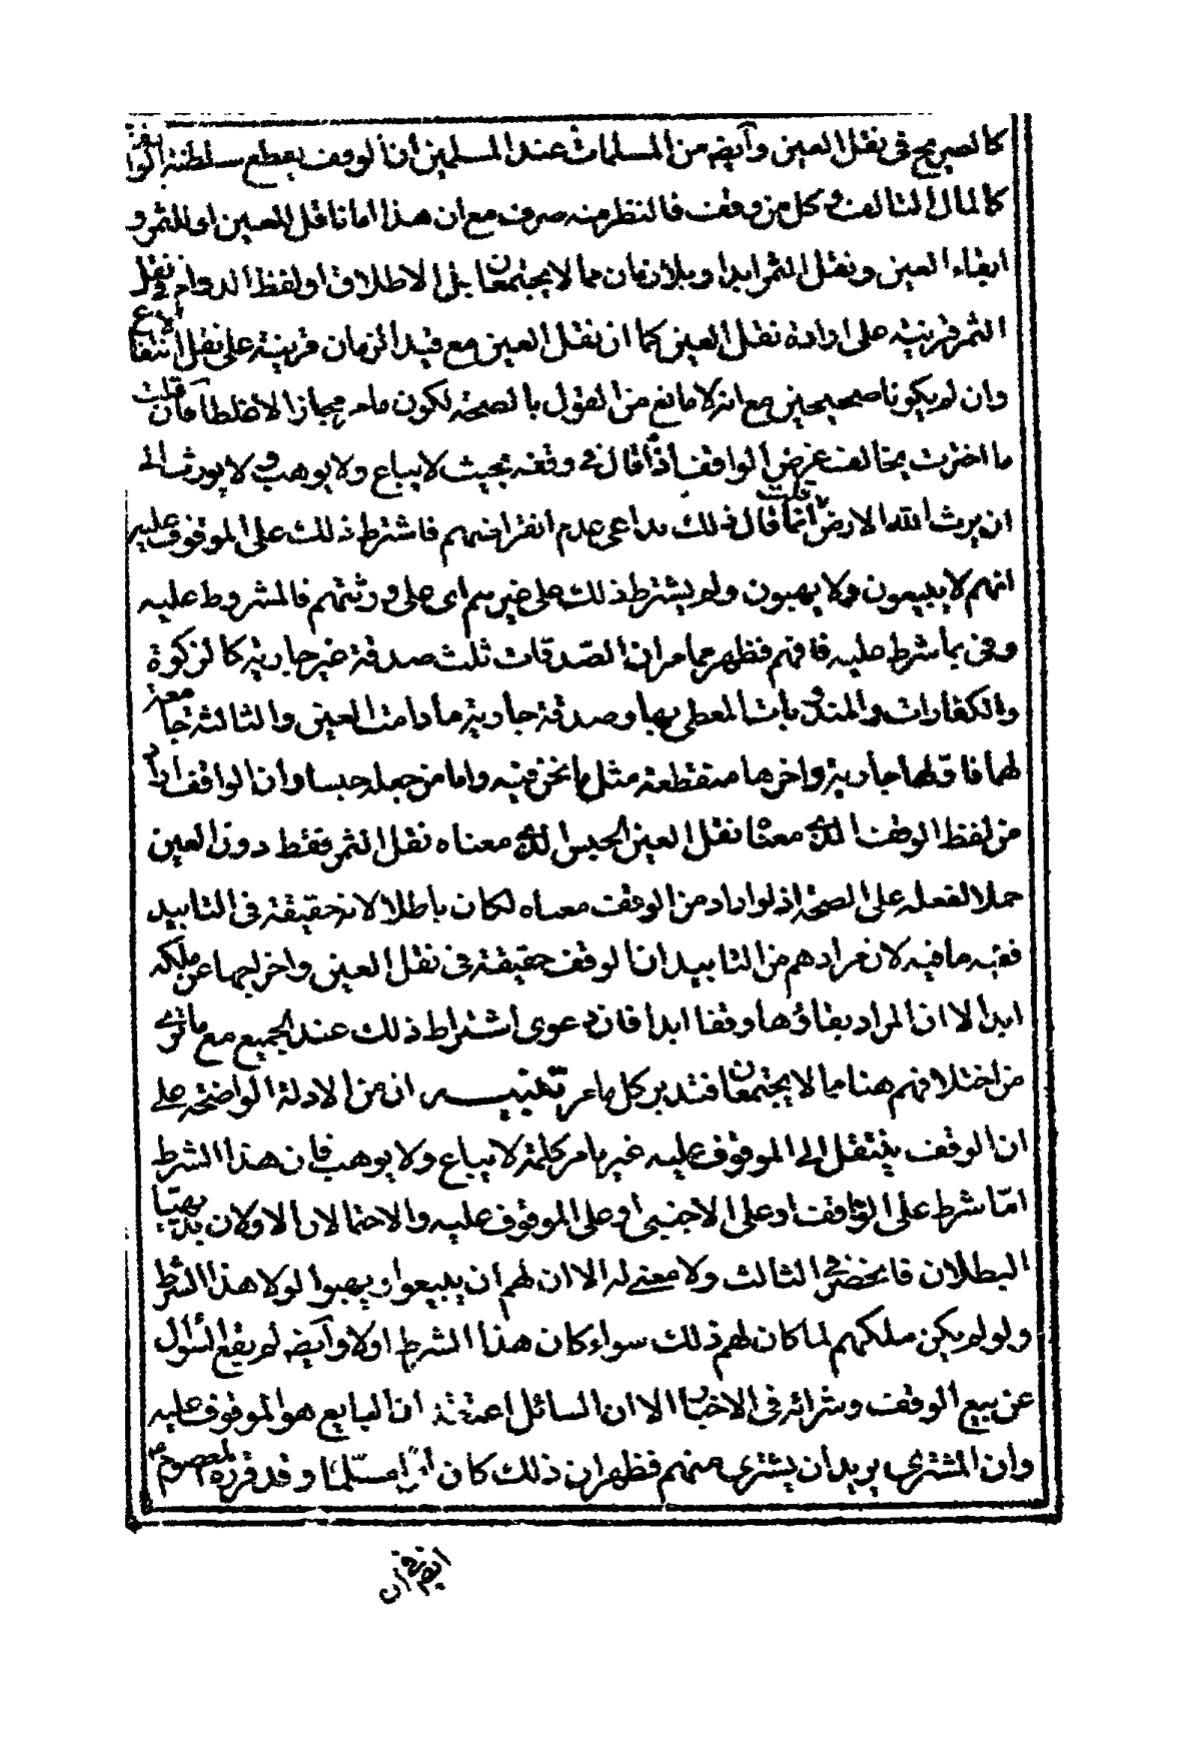 كالصريح فى نقل العين وآيضه من المسلمات عند المسلمين ان الوقف يقطع سلطنة الواقف
كالمال التالف وكل من وقفت فالنظر منه صرف مع ان هذا اما ناقل العين او الثمر و
ابقاء العين ونقل الثمر ابدا وبلا زمان مما لا يجتمعان بل الاطلاق او لفظ الدوام فى نقل
الثمر قرينة على ارادة نقل العين كما ان نقل العين مع قيد الزمان قرينة على نقل الانتفاع
وان لم يكونا صحيحين مع انه لا مانع من القول بالصحة لكون مامر مجازا لا غلطا فان قلت
ما اخترت يخالف غرض الواقف اذا قال فى وقفه بحيث لا يباع ولا يوهب ولا يورث الى
ان يرث الله الارض قلت انما قال ذلك بداعى عدم انقراضهم فاشترط ذلك على الموقوف عليهم
انهم لا يبيعون ولا يهبون ولم يشترط ذلك على غيرهم اى على ورثتهم فالمشروط عليه
وفى بما شرط عليه فافهم فظهر مما مر ان الصدقات ثلث صدقة غير جارية كالزكوة
والكفارات والمنذور بات المعطى بها وصدقة جارية مادامت العين والثالثة جامعة
لهما فاولها جارية واخرها منقطعة مثل ما نحن فيه واما من جعله حبسا وان الواقف اراد
من لفظ الوقف الذى معناه نقل العين الحبس الذى معناه نقل الثمر فقط دون العين
حملا لفعله على الصحة اذ لو اراد من الوقف معناه لكان باطلا لانه حقيقة فى التابيد
ففيه ما فيه لان مرادهم من التابيد ان الوقف حقيقة فى نقل العين واخراجها عن ملكه
ابدا لا ان المراد بقاؤها وقفا ابدا فان دعوى اشتراط ذلك عند الجميع مع ما ترى
من اختلافهم هنا مما لا يجتمعان فتدبر كل مامر تنبيه ان من الادلة الواضحة على
ان الوقف ينتقل الى الموقوف عليه غير ما مر كلمة لا يباع ولا يوهب فان هذا الشرط
امّا شرط على الواقف او على الاجنبى او على الموقوف عليه والاحتمالان الاولان بديهيا
البطلان فانحصر فى الثالث ولا معنى له الا ان لهم ان يبيعوا ويهبوا لولا هذا الشرط
ولو لم يكن ملكهم لما كان لهم ذلك سواء كان هذا الشرط اولا وآيضه لم يقع السؤال
عن بيع الوقف وشرائه فى الاخبار الا ان السائل اعتقد ان البايع هو الموقوف عليه
وان المشترى يريدان يشترى منهم فظهر ان ذلك كان امرا مسلما وقد قرره المعصوم